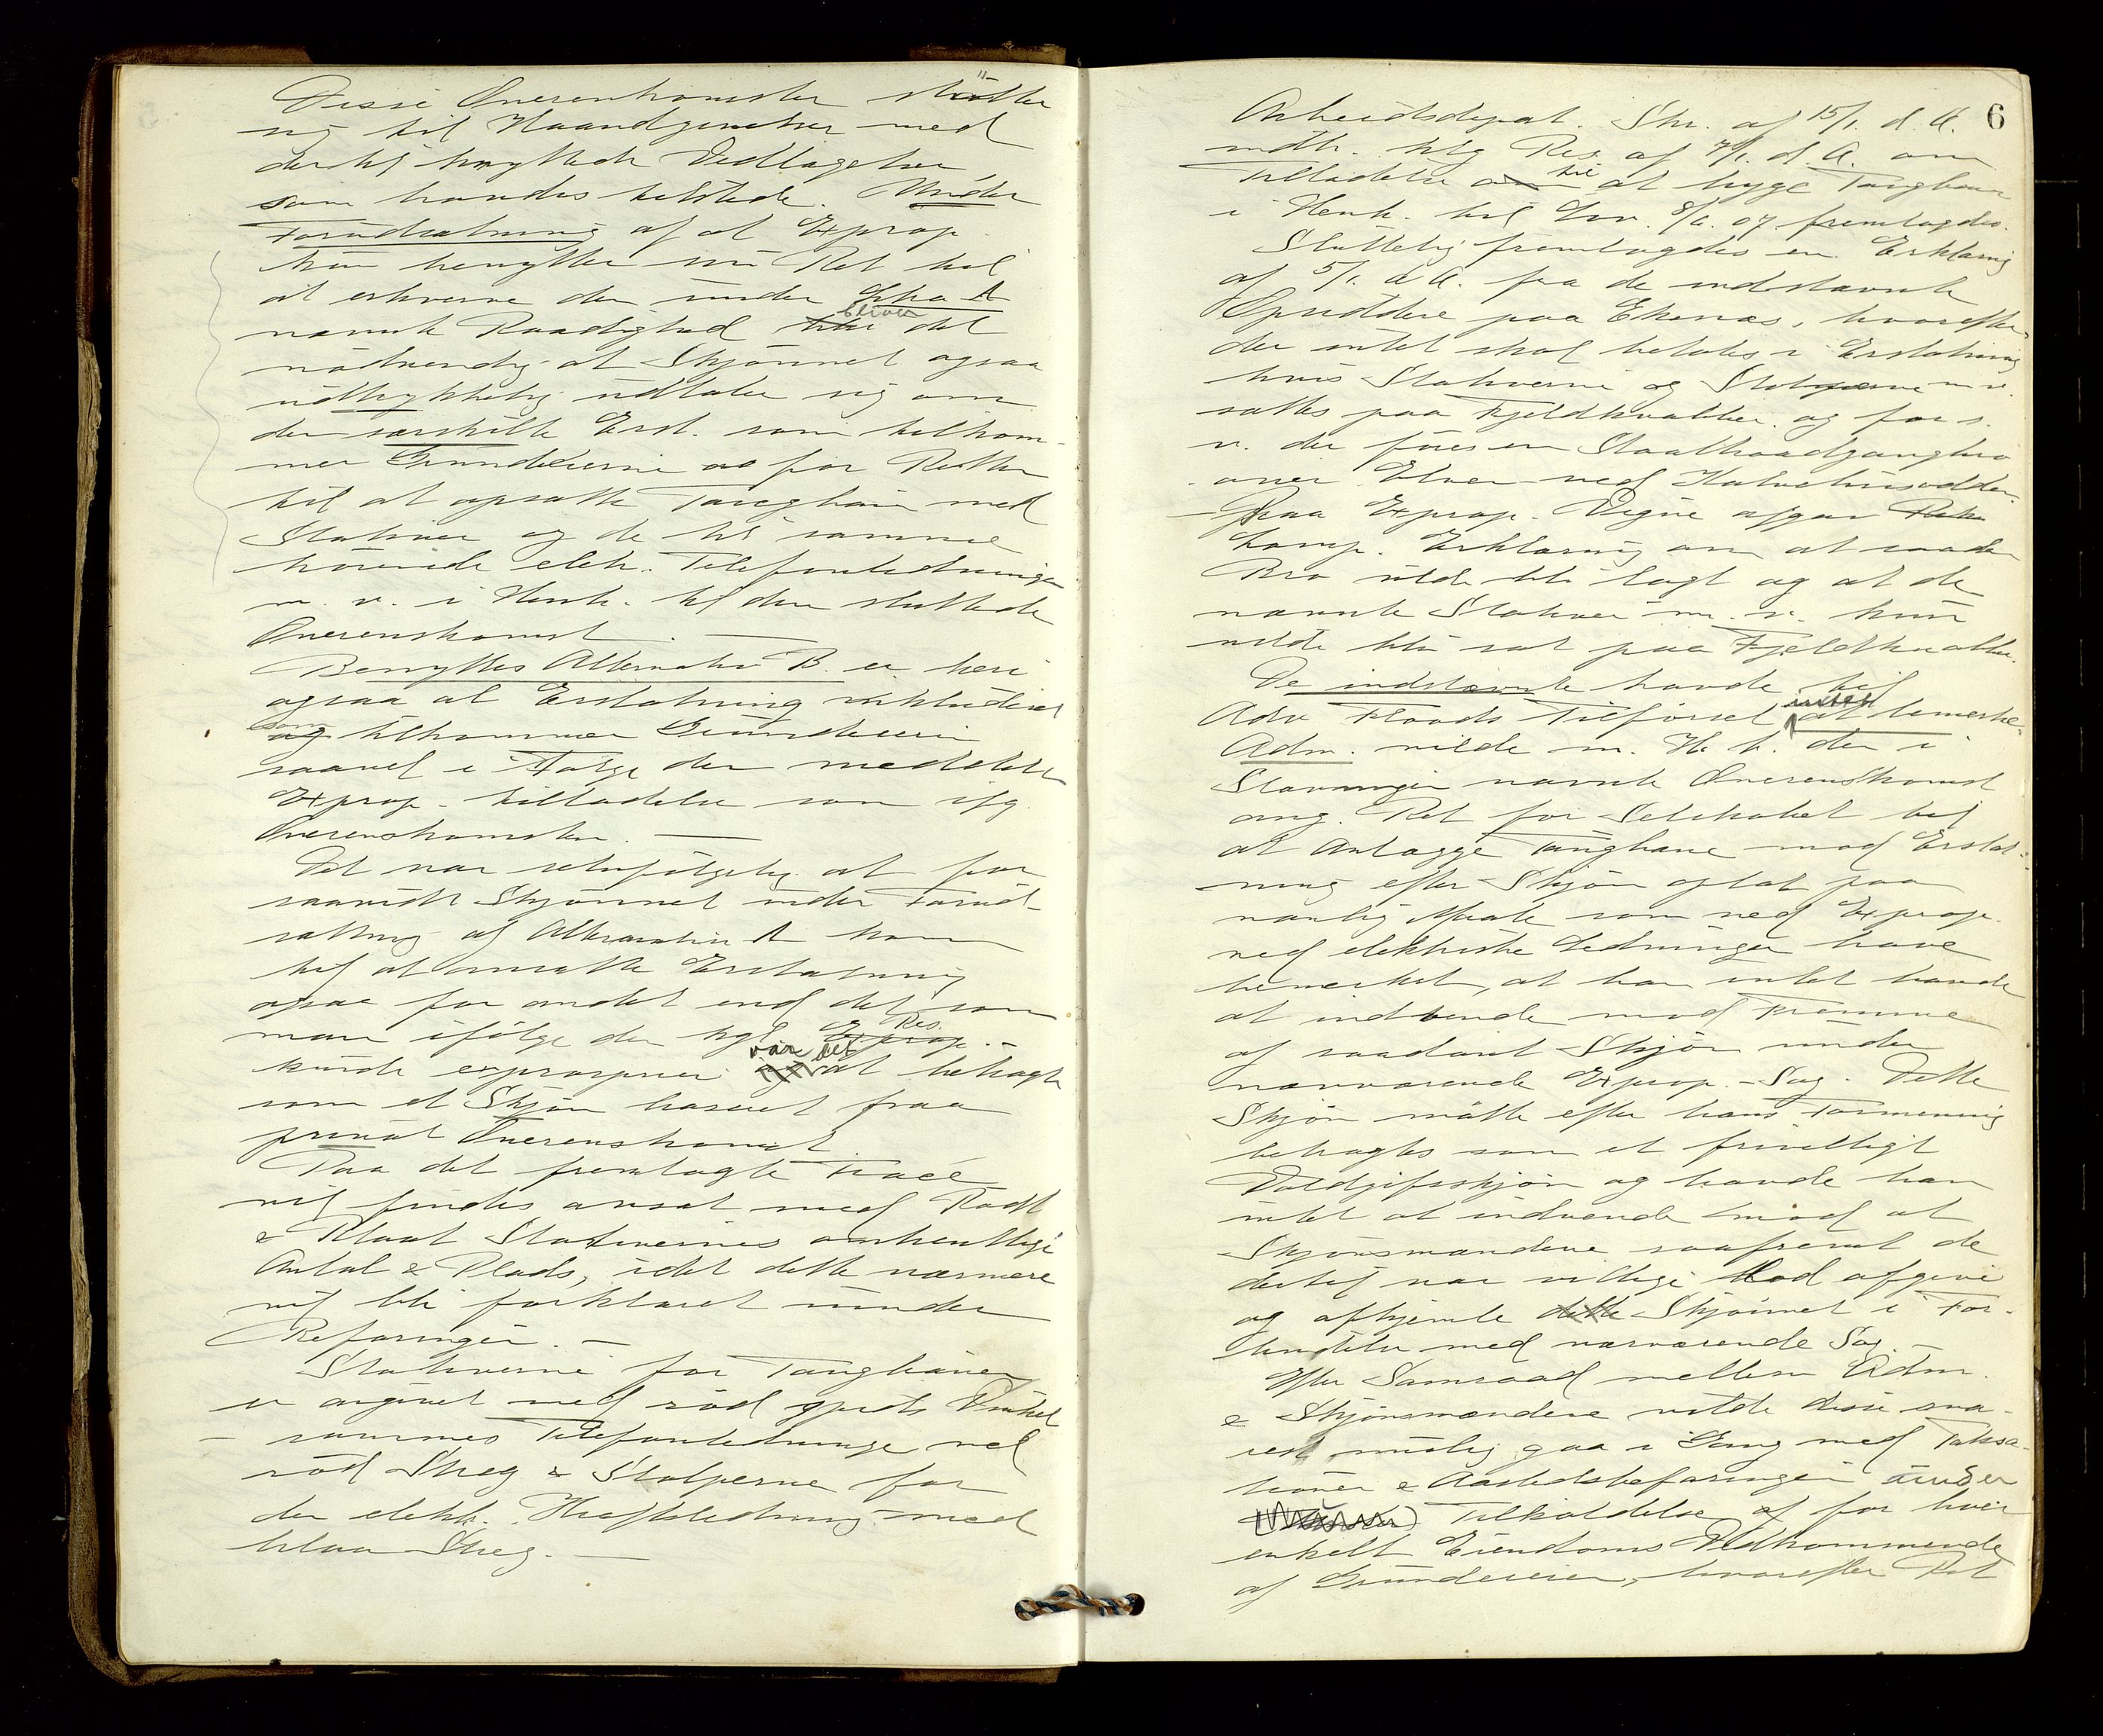 Disse Overenskomster støtter
sig til Haandgivelser med
dertil knyttede Vedlagelser
som havdes tilstede. Under
Forudsætning af at Exprop.
kun benytter sin Ret til
at erhverve den under Litra A
nævnte Raadighed bliver det
nødvendig at Skjønnet ogsaa
udtrykkelig udtaler sig om
den særskilte Erst. som tilkom-
mer Grundeierne for Retten
til at opsætte Taugbane med
Stativer og de til samme
hørende elek. Telefonledninger
m. v. i Henh. til den sluttede
Overenskomst. —
Benyttes Alternativ B. er heri
ogsaa al Erstatning inkluderet
som tilkommer Grundeierne
saavel i Følge den meddelte
Exprop. tilladelse som ifg.
Overenskomsten. —
Det var selvfølgelig at for
saavidt Skjønnet under Forud-
sætning af Alternativ A kom
til at ansætte Erstatning
ogsaa for andet end det som
man ifølge den kgl. Res.
kunde expropriere var det at betragte
som et Skjøn baseret paa
privat Overenskomst.
Paa det fremlagte Tracé
vil findes avsat med Rødt
& Blaat Stativernes omtrentlige
Antal & Plads, idet dette nærmere
vil bli forklaret under
Befaringen. —
Stativerne for Taugbanen
er angivet med rød spids Vinkel
— sammes Telefonledninge ved
rød Streg & Stolperne for
den elektr. Kraftledning med
blaa Streg. —
6
Arbeidsdepat. Skr. af 15/1. d. A.
medh. kglg Res. af 7/1. d. A. om
Tilladelse til at bygge Taugbane
i Henh. til Lov. 8/6. 07 fremlagdes.
Sluttelig fremlagdes en Erklæring
af 5/1. d. A. fra de indstævnte
Opsiddere paa Ekenæs, hvorefter
der intet skal betales i Erstatning
hvis Stativerne og Stolperne m. v.
sættes paa Fjeldknatter og for s.
v. der føres en Staaltraadgangbro
over Elven ved Kalvehusodden.
— Paa Exprop. Vegne afgav
komp. Erklæring om at saadan
Bro vilde bli lagt og at de
nævnte Stativer m. v. kun
vilde bli sat paa Fjeldknatter.
De indstævnte havde til
Adv Floods Tilførsel intet at bemerke.
Adm. vilde m. H. t. den i
Stævningen nævnte Overenskomst
ang. Ret for Selskabet til
at Anlægge Taugbane mod Erstat-
ning efter Skjøn optat paa
vanlig Maate som ved Exprop.
ved elektriske Ledninger have
bemerket, at han intet havde
at indvende mod Fremme
af saadant Skjøn under
nærværende Exprop. - Sag. Dette
Skjøn måtte efter hans Formening
betragtes som et frivilligt
Voldgifsskjøn og havde han
intet at indvende mod at
Skjønsmændene saafremt de
dertil var villige lod afgive
og afhjemle Skjønnet i For-
bindelse med nærværende Sag. —
Efter Samraad mellem Adm.
& Skjønsmændene vilde disse sna-
rest mulig gaa i Gang med Taksa-
tionen & Aastedsbefaringen under
Tilkaldelse af for hver
enkelt Eiendoms Vedkommende
af Grundeieren, hvorefter Ret